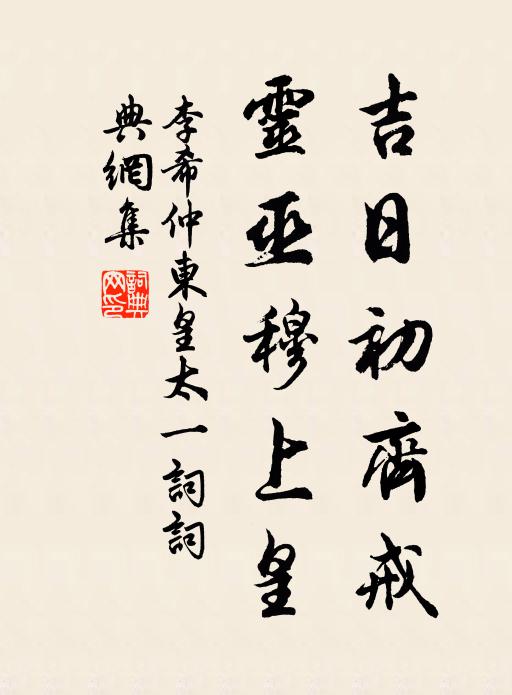 吉日初齊戒
靈巫穆上皇
李希仲東皇太一詞詞
典網集
詞典網印